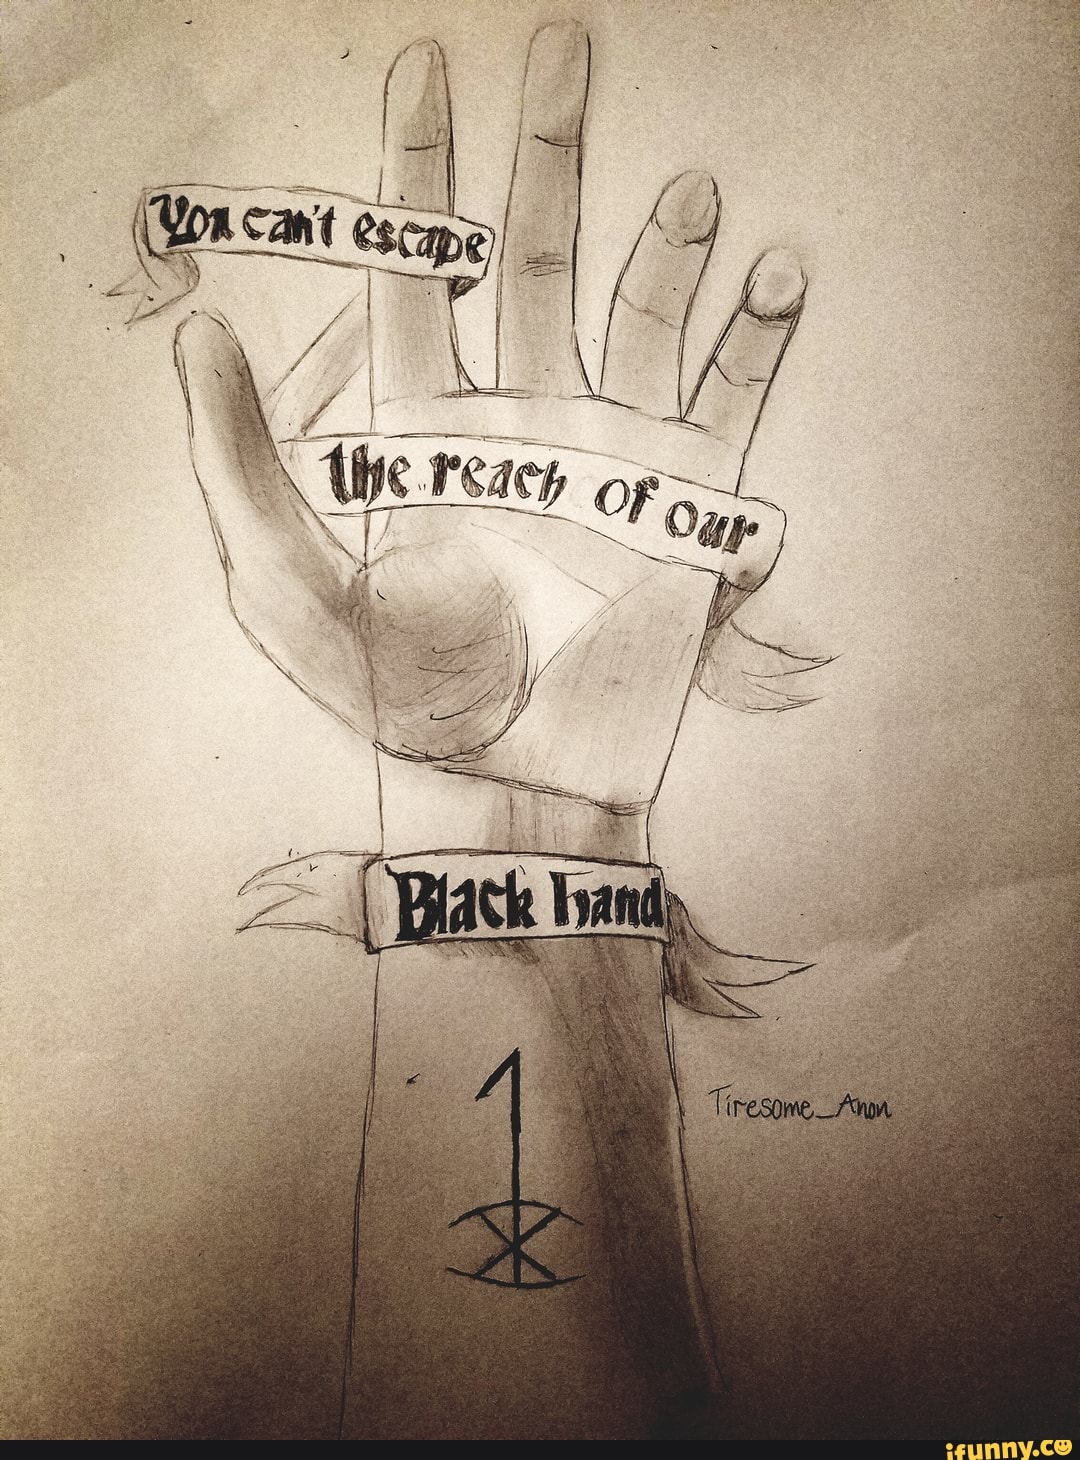 You can't escape
the reach of our
Black hand
Tiresome_Anon
ifunny.co